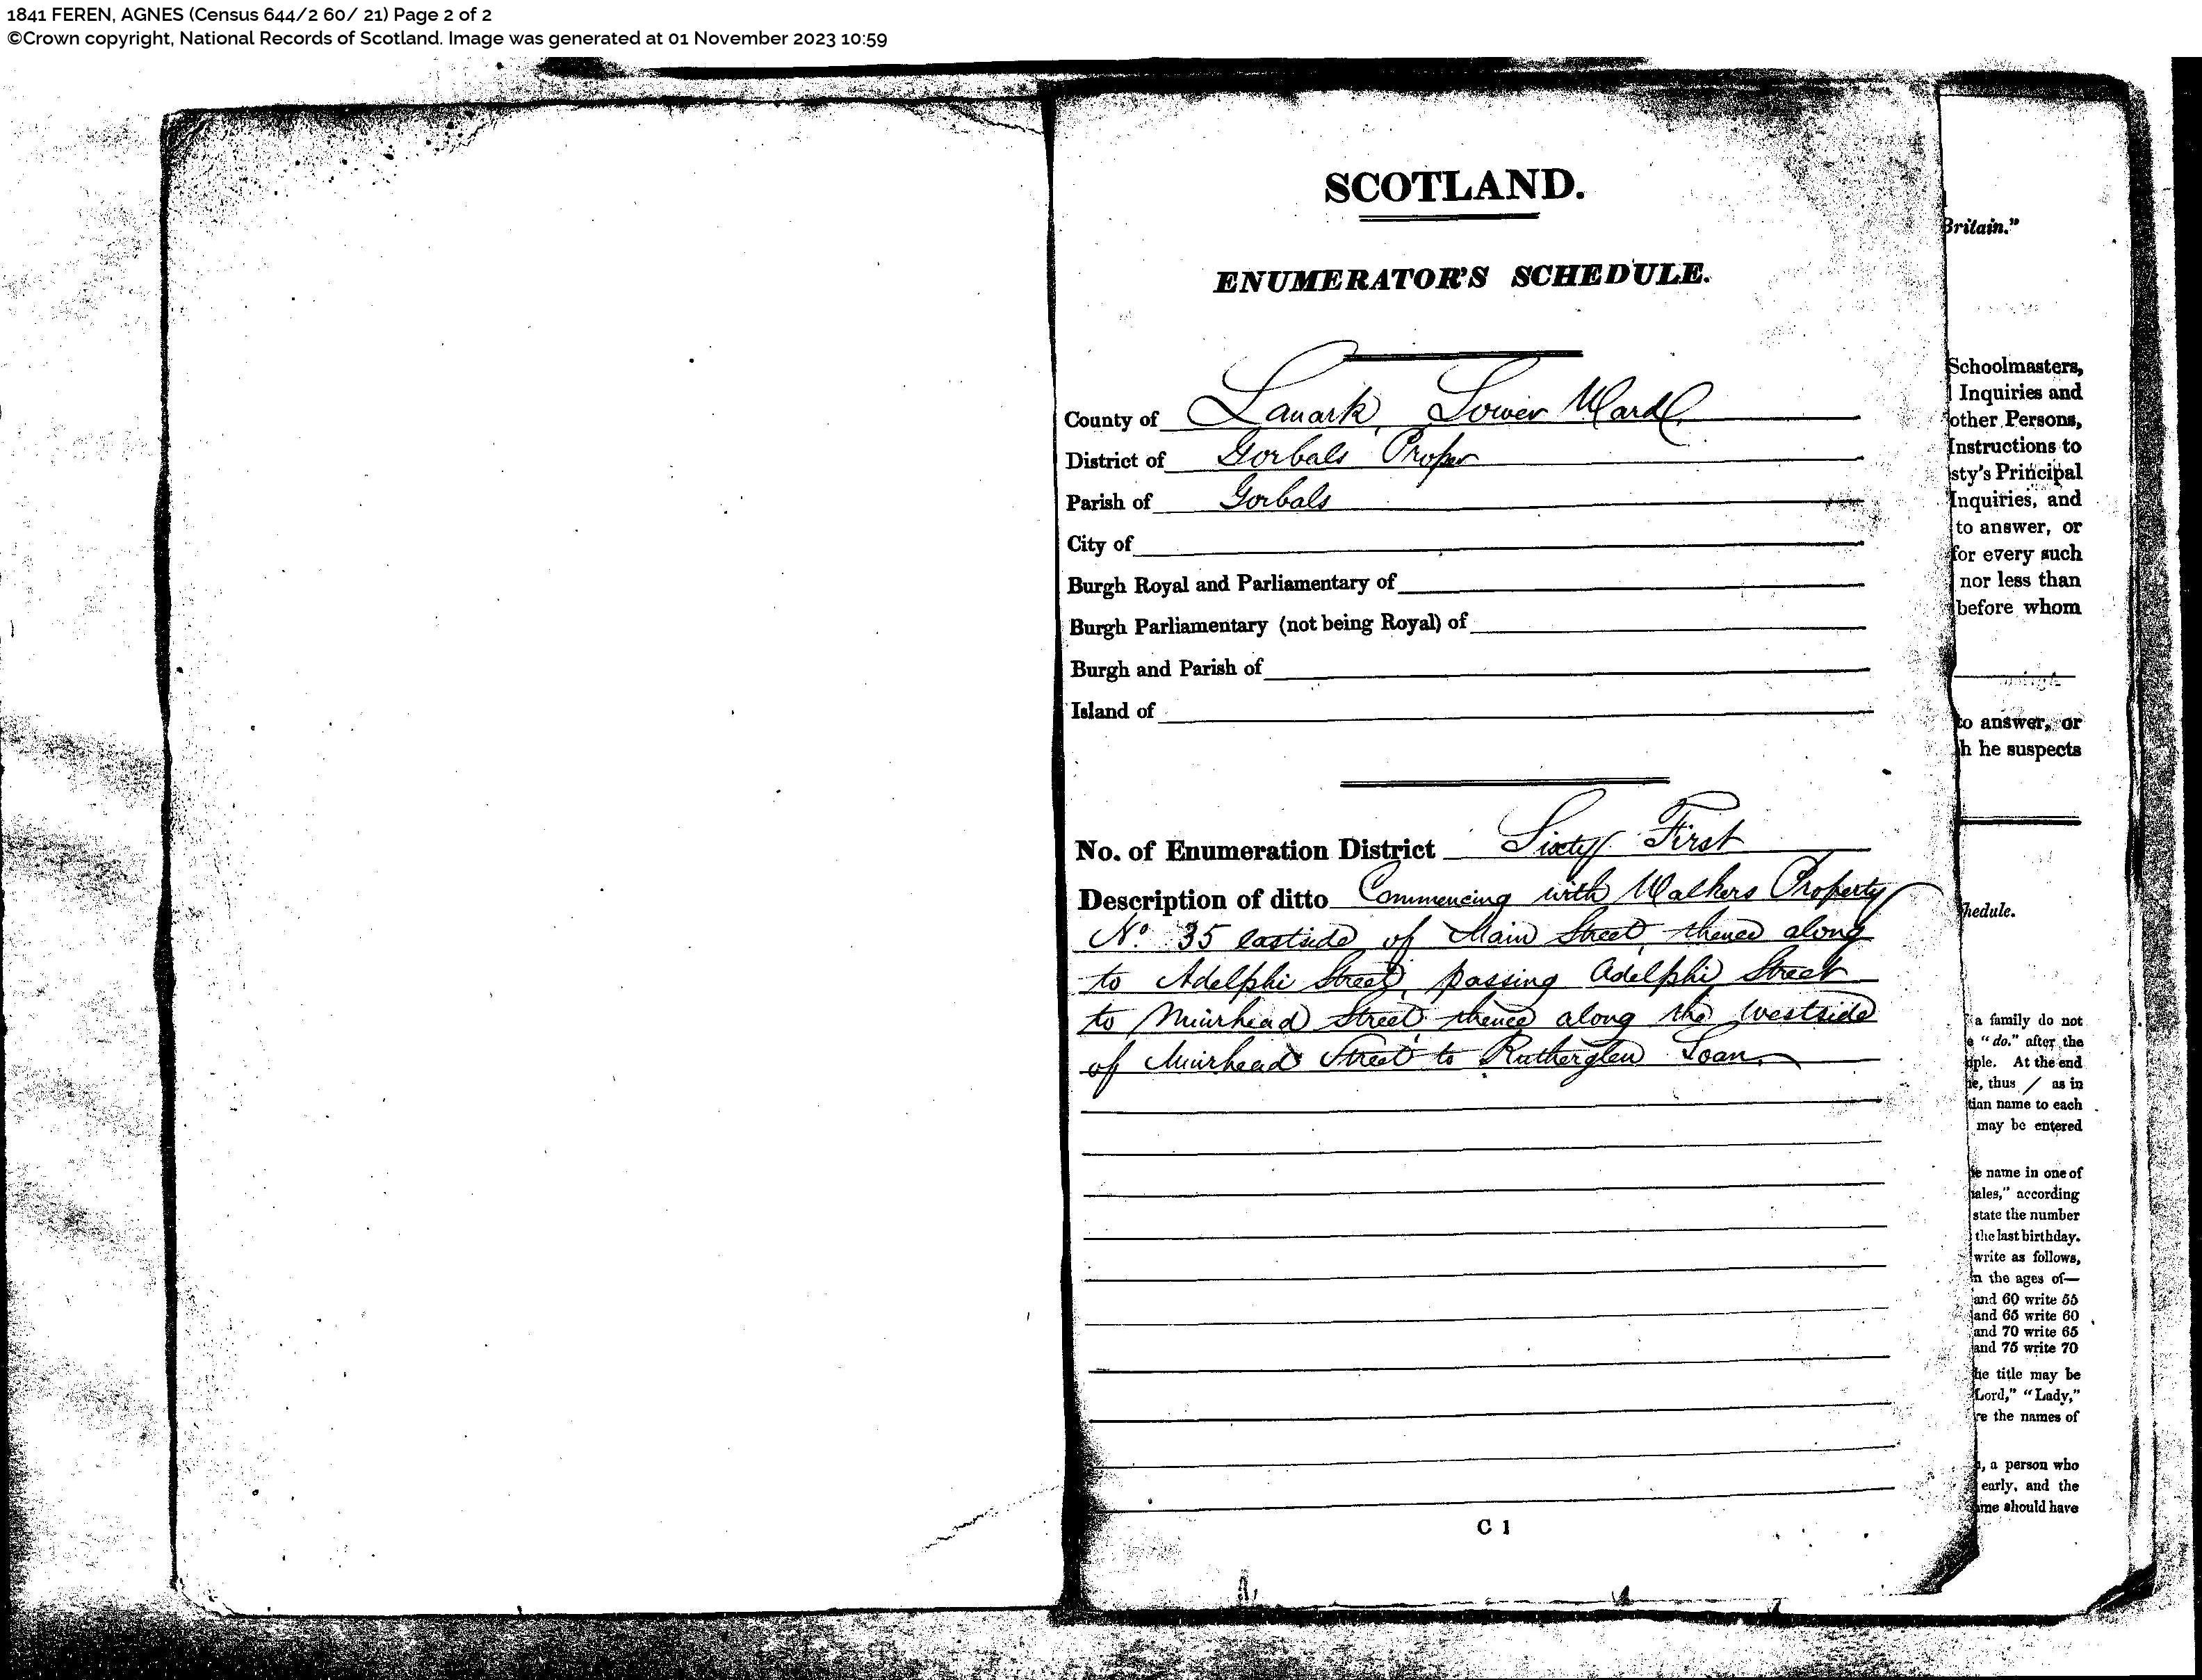 1841 FEREN, AGNES (Census 644/2 60/ 21) Page 2 of 2
©Crown copyright, National Records of Scotland. Image was generated at 01 November 2023 10:59
SCOTLAND.
ENUMERATOR'S SCHEDULE.
County of Lanark, Lower Ward
District of Gorbals Proper
Parish of Gorbals
City of
Burgh Royal and Parliamentary of
Burgh Parliamentary (not being Royal) of
Burgh and Parish of
Island of
No. of Enumeration District Sixty First
Description of ditto Commencing with Walkers Property
No. 35 eastside of Main Street, thence along
to Adelphi Street, passing Adelphi Street
to Muirhead Street thence along the westside
of Muirhead Street to Rutherglen Loan
C 1
Britain."
Schoolmasters,
Inquiries and
other Persons,
Instructions to
sty's Principal
Inquiries, and
to answer, or
for every such
nor less than
before whom
to answer, or
h he suspects
hedule.
a family do not
"do." after the
ple. At the end
e, thus / as in
tian name to each
may be entered
e name in one of
ales," according
state the number
the last birthday.
write as follows,
n the ages of—
and 60 write 55
and 65 write 60
and 70 write 65
and 75 write 70
he title may be
Lord," "Lady,"
re the names of
, a person who
early, and the
me should have